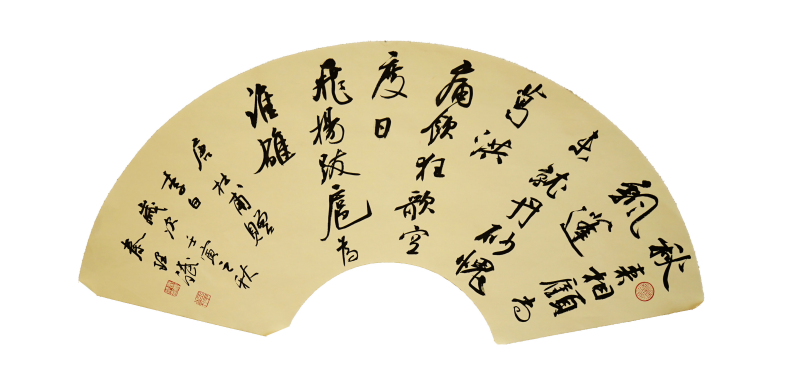 秋來相顧尚
飄蓬
未就丹砂愧
葛洪
痛飲狂歌空
度日
飛揚跋扈為
誰雄
唐杜甫贈
李白
歲次壬寅之秋
秦理斌